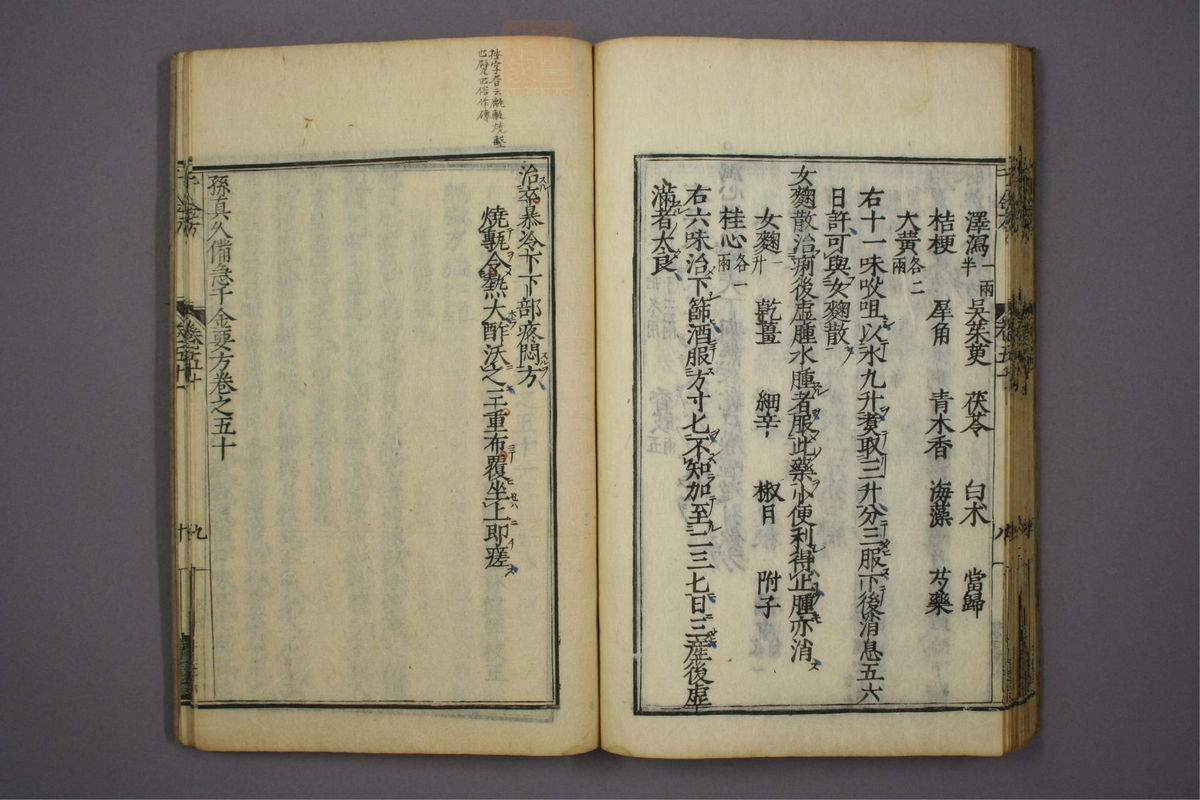 澤瀉一兩半 吳茱萸 茯苓 白朮 當歸
桔梗 犀角 青木香 海藻 芍藥
大黃各二兩
右十一味㕮咀以水九升煑取三升分三服下後消息五六
日許可與女麴散
女麴散治痢後虛腫水腫者服此藥小便利得止腫亦消
女麴一升 乾薑 細辛 椒目 附子
桂心各一兩
右六味治下篩酒服方寸匕不知加至二三七日三産後虛
滿者大良
治卒暴冷下下部疼悶方
燒甎令熱大酢沃之三重布覆坐上即瘥
孫真人備急千金要方卷之五十